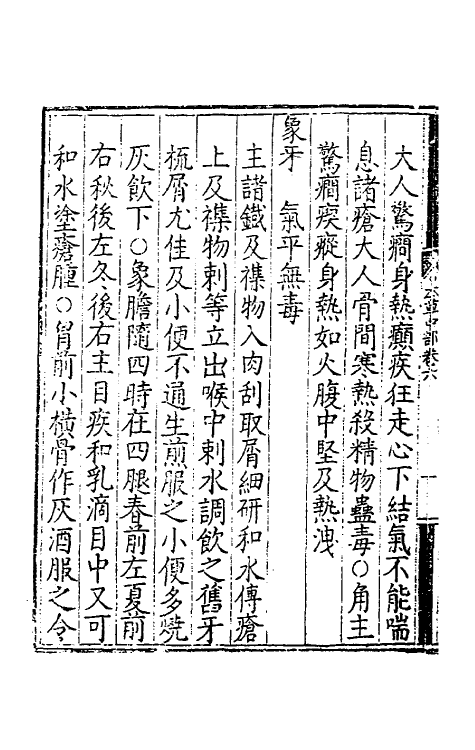 大人驚癇身熱癲疾狂走心下結氣不能喘
息諸瘡大人骨間寒熱殺精物蠱毒〇角主
驚癇瘈瘲身熱如火腹中堅及熱洩
象牙　氣平無毒
主諸鐵及襍物入肉刮取屑細研和水傅瘡
上及襍物刺等立出喉中刺水調飲之舊牙
梳屑尤佳及小便不通生煎服之小便多燒
灰飲下〇象膽隨四時在四腿春前左夏前
右秋後左冬後右主目疾和乳滴目中又可
和水塗瘡腫〇胷前小橫骨作灰酒服之令